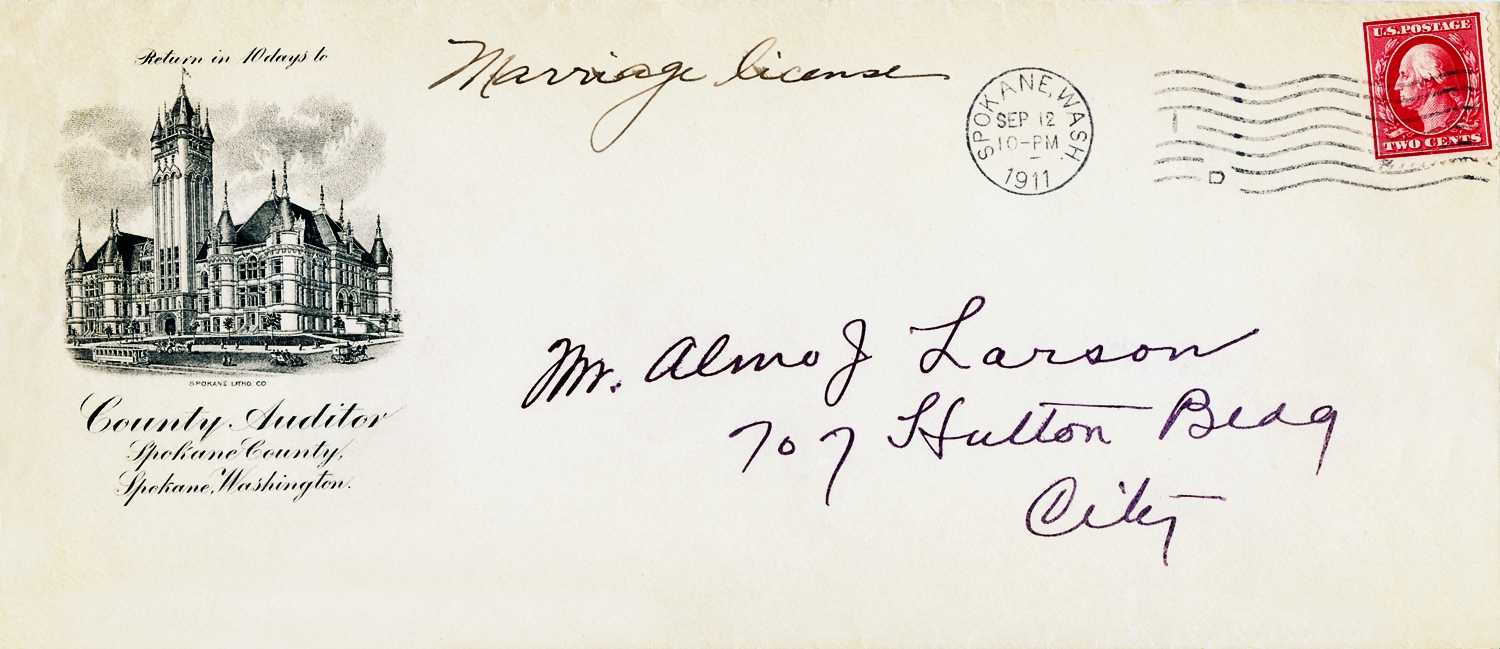 Return in 10 days to
Marriage license
SPOKANE, WASH.
SEP 12
10-PM
1911
U.S. POSTAGE
TWO CENTS
SPOKANE LITHO. CO
County Auditor
Spokane County,
Spokane, Washington.
Mr. Almo J Larson
707 Hutton Bldg
City